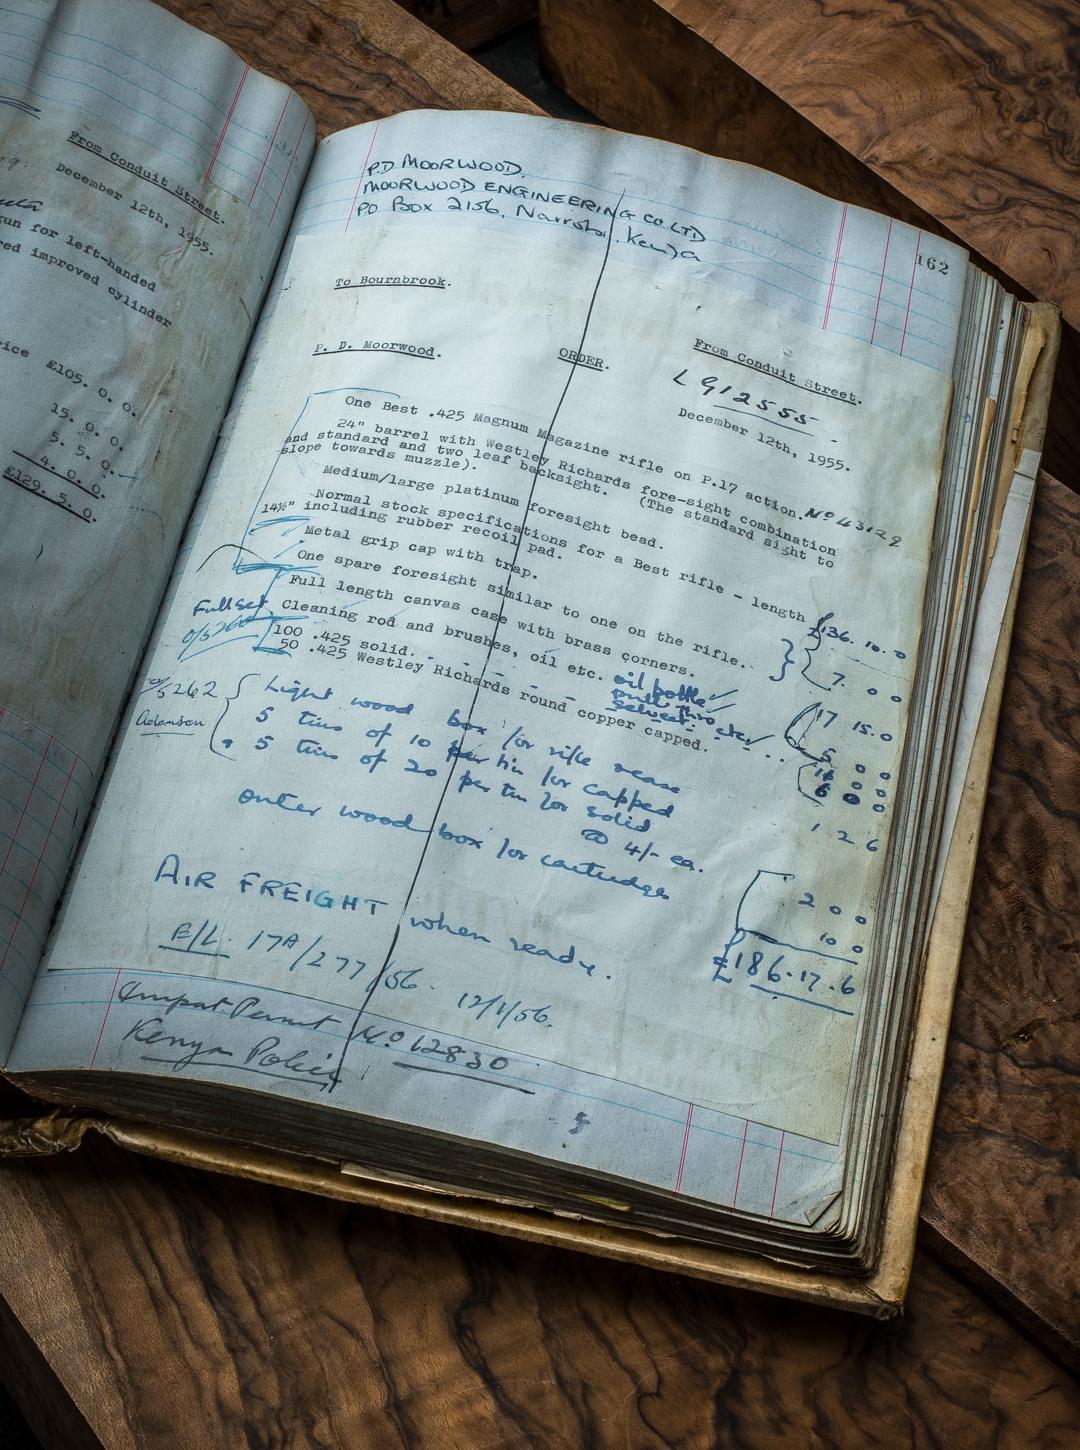 From Conduit Street.
December 12th, 1955.
gun for left-handed
improved cylinder
£105. 0. 0.
15. 0. 0.
5. 5. 0.
4. 0. 0.
£129. 5. 0.
P.D. MOORWOOD,
MOORWOOD ENGINEERING CO. LTD
PO Box 2156, Nairobi, Kenya
162
To Bournbrook.
P. D. Moorwood.
ORDER.
From Conduit Street.
L912555
December 12th, 1955.
One Best .425 Magnum Magazine rifle on P.17 action. No 43129
24" barrel with Westley Richards fore-sight combination
and standard and two leaf backsight. (The standard sight to
slope towards muzzle).
Medium/large platinum foresight bead.
Normal stock specifications for a Best rifle - length
14½" including rubber recoil pad.
£136. 10. 0
Metal grip cap with trap.
One spare foresight similar to one on the rifle.
Full length canvas case with brass corners.
7. 0 0
Full set
Cleaning rod and brushes, oil etc. oil bottle
pull thro
17 15. 0
100 .425 solid.
50 .425 Westley Richards round copper capped.
5 0 0
6 0 0
5262
Adamson
Light wood box for rifle case
5 tins of 10 per tin for capped
5 tins of 20 per tin for solid
@ 4/- ea.
1 2 6
outer wood box for cartridge
2 0 0
10 0
AIR FREIGHT when ready.
£186. 17. 6
E/L. 17A/277/56. 12/1/56.
Import Permit No 12830
Kenya Police